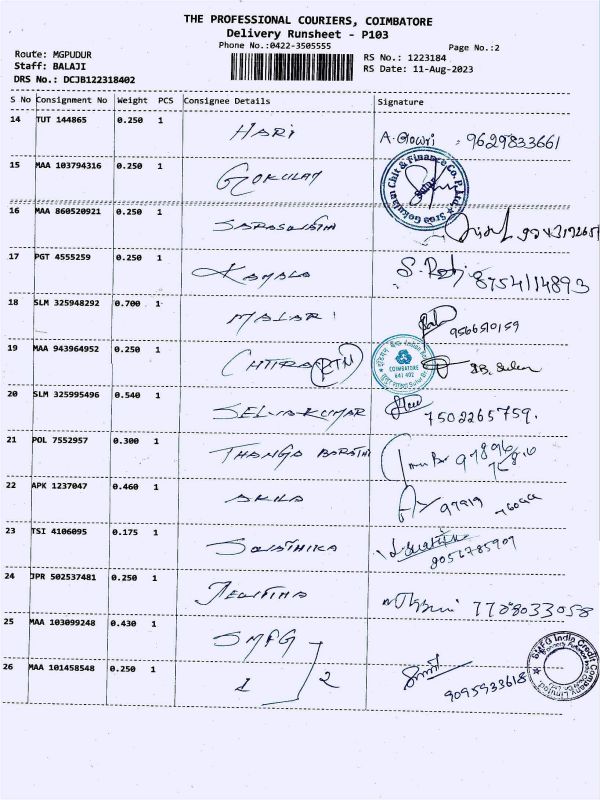 THE PROFESSIONAL COURIERS, COIMBATORE
Delivery Runsheet - P103
Phone No.:0422-3505555
Page No.:2
Route: MGPUDUR
RS No.: 1223184
Staff: BALAJI
RS Date: 11-Aug-2023
DRS No.: DCJB122318402
S No Consignment No Weight PCS Consignee Details Signature
14 TUT 144865 0.250 1 HARI A. Gowri 9629833661
15 MAA 103794316 0.250 1 GOKULAM
Sree Gokulam Chit & Finance Co. P. Ltd.
16 MAA 860520921 0.250 1
17 PGT 4555259 0.250 1 KAMALA 8754114893
18 SLM 325948292 0.700 1 MALAR 9566510159
19 MAA 943964952 0.250 1 RTM
COIMBATORE
641 402
20 SLM 325995496 0.540 1 SELVAKUMAR 7502265759.
21 POL 7552957 0.300 1 THANGA BARATHI
22 APK 1237047 0.460 1 AKILA
23 TSI 4106095 0.175 1 SWATHIKA
8056785909
24 JPR 502537481 0.250 1 7708033058
25 MAA 103099248 0.430 1 SMFG
26 MAA 101458548 0.250 1 2 9095933618
SMFG India Credit Company Limited